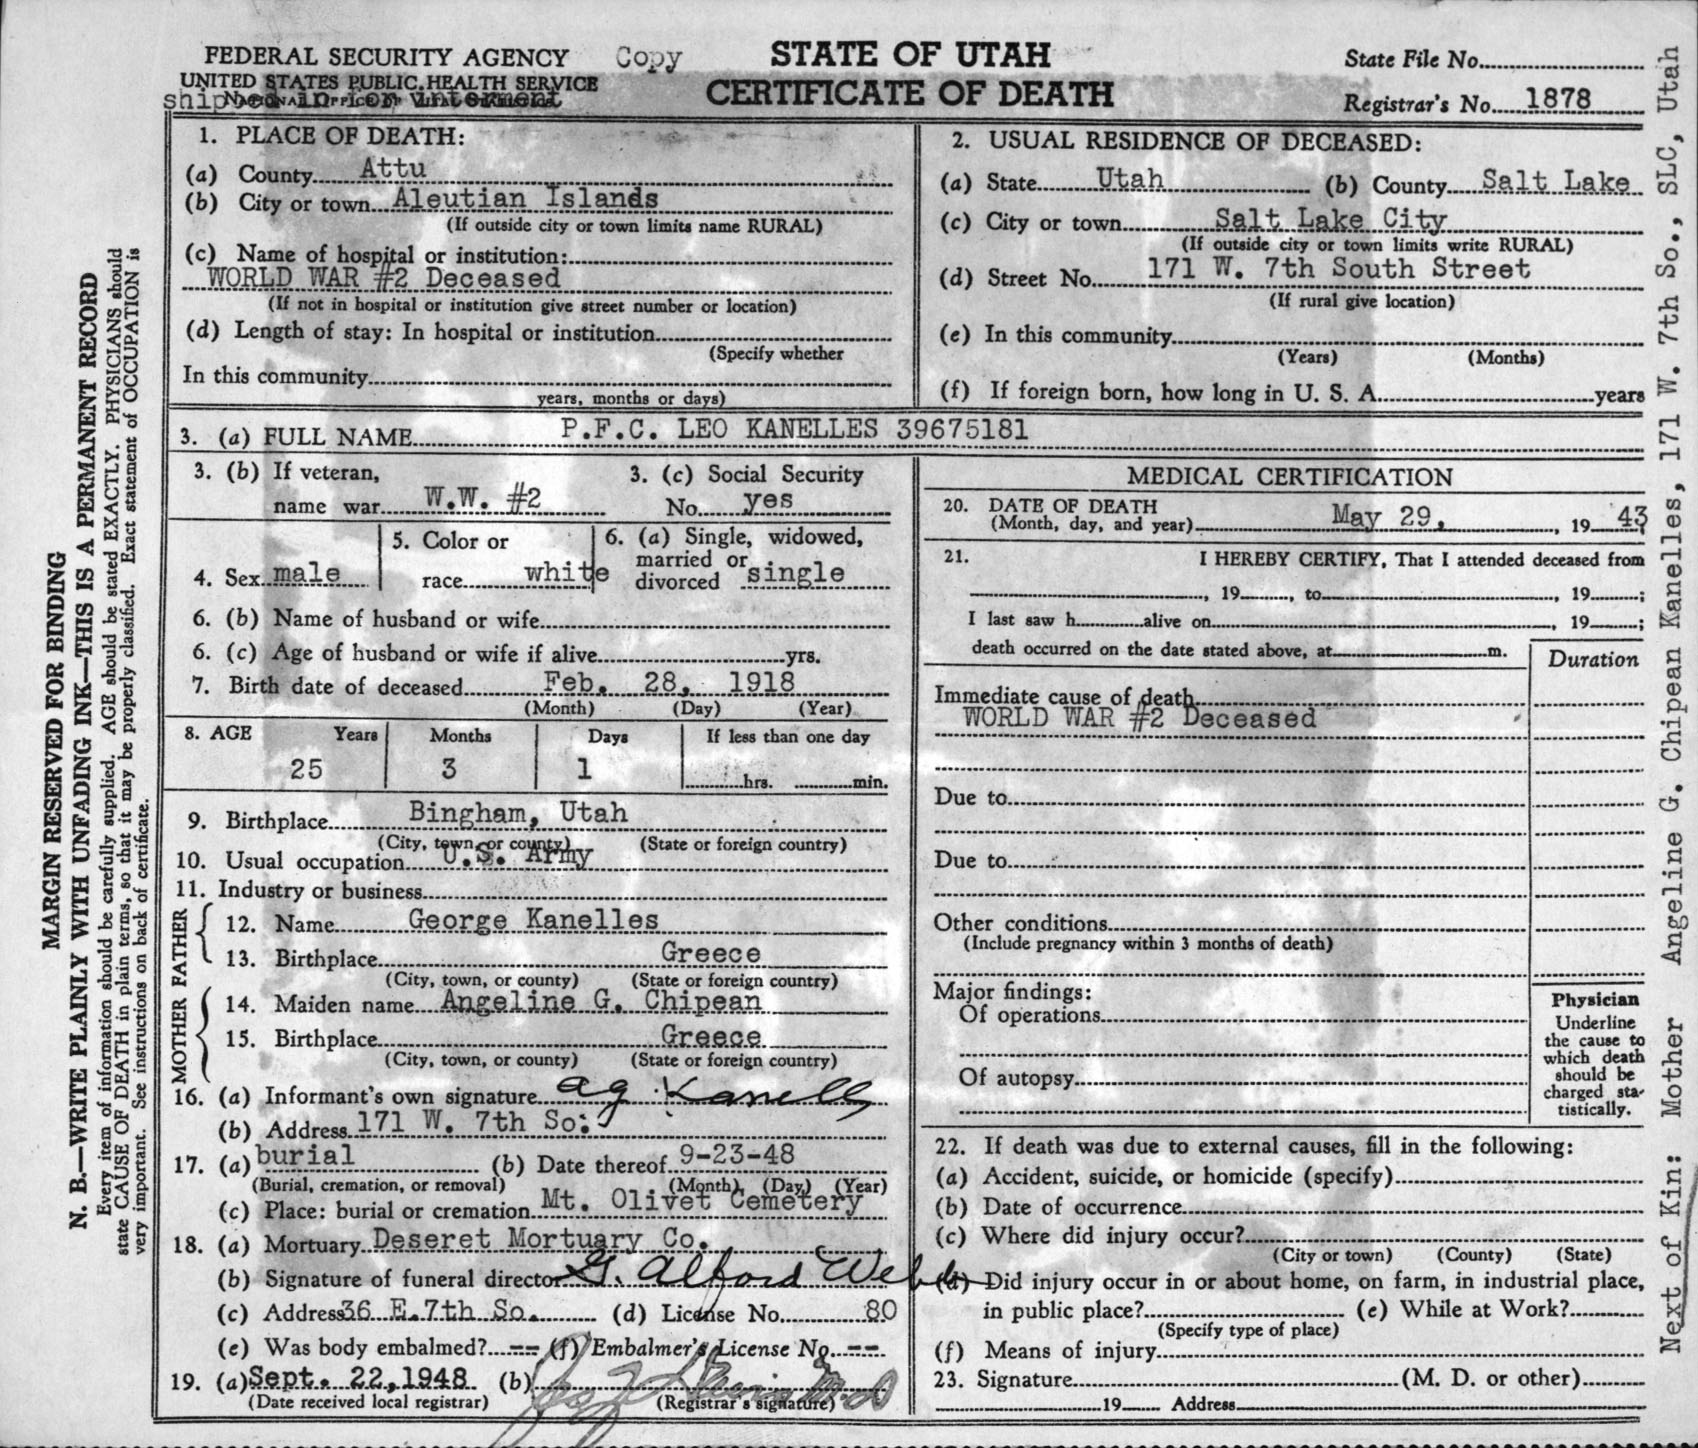 FEDERAL SECURITY AGENCY Copy
UNITED STATES PUBLIC HEALTH SERVICE
shipped in for interment
STATE OF UTAH
CERTIFICATE OF DEATH
State File No.
Registrar's No. 1878
1. PLACE OF DEATH:
(a) County Attu
(b) City or town Aleutian Islands
(If outside city or town limits name RURAL)
(c) Name of hospital or institution:
WORLD WAR #2 Deceased
(If not in hospital or institution give street number or location)
(d) Length of stay: In hospital or institution
(Specify whether
In this community
years, months or days)
2. USUAL RESIDENCE OF DECEASED:
(a) State Utah (b) County Salt Lake
(c) City or town Salt Lake City
(If outside city or town limits write RURAL)
(d) Street No. 171 W. 7th South Street
(If rural give location)
(e) In this community
(Years) (Months)
(f) If foreign born, how long in U. S. A. years
3. (a) FULL NAME P.F.C. LEO KANELLES 39675181
3. (b) If veteran,
name war W.W. #2
3. (c) Social Security
No. yes
4. Sex male
5. Color or
race white
6. (a) Single, widowed,
married or
divorced single
6. (b) Name of husband or wife
6. (c) Age of husband or wife if alive yrs.
7. Birth date of deceased Feb. 28, 1918
(Month) (Day) (Year)
8. AGE Years Months Days If less than one day
25 3 1 hrs. min.
9. Birthplace Bingham, Utah
(City, town, or county) (State or foreign country)
10. Usual occupation U.S. Army
11. Industry or business
FATHER
12. Name George Kanelles
13. Birthplace Greece
(City, town, or county) (State or foreign country)
MOTHER
14. Maiden name Angeline G. Chipean
15. Birthplace Greece
(City, town, or county) (State or foreign country)
16. (a) Informant's own signature a g Kanelles
(b) Address 171 W. 7th So:
17. (a) burial (b) Date thereof 9-23-48
(Burial, cremation, or removal) (Month) (Day) (Year)
(c) Place: burial or cremation Mt. Olivet Cemetery
18. (a) Mortuary Deseret Mortuary Co.
(b) Signature of funeral director G. Alford Webb
(c) Address 36 E. 7th So. (d) License No. 80
(e) Was body embalmed? -- (f) Embalmer's License No. --
19. (a) Sept. 22, 1948 (b)
(Date received local registrar) (Registrar's signature)
MEDICAL CERTIFICATION
20. DATE OF DEATH
(Month, day, and year) May 29, , 19 43
21. I HEREBY CERTIFY, That I attended deceased from
, 19 , to , 19 ;
I last saw h alive on , 19 ;
death occurred on the date stated above, at m.
Duration
Immediate cause of death
WORLD WAR #2 Deceased
Due to
Due to
Other conditions
(Include pregnancy within 3 months of death)
Major findings:
Of operations
Of autopsy
Physician
Underline
the cause to
which death
should be
charged sta-
tistically.
22. If death was due to external causes, fill in the following:
(a) Accident, suicide, or homicide (specify)
(b) Date of occurrence
(c) Where did injury occur?
(City or town) (County) (State)
(d) Did injury occur in or about home, on farm, in industrial place,
in public place? (e) While at Work?
(Specify type of place)
(f) Means of injury
23. Signature (M. D. or other)
19 Address
MARGIN RESERVED FOR BINDING
N. B.—WRITE PLAINLY WITH UNFADING INK—THIS IS A PERMANENT RECORD
Every item of information should be carefully supplied. AGE should be stated EXACTLY. PHYSICIANS should
state CAUSE OF DEATH in plain terms, so that it may be properly classified. Exact statement of OCCUPATION is
very important. See instructions on back of certificate.
Next of Kin: Mother Angeline G. Chipean Kanelles, 171 W. 7th So., SLC, Utah